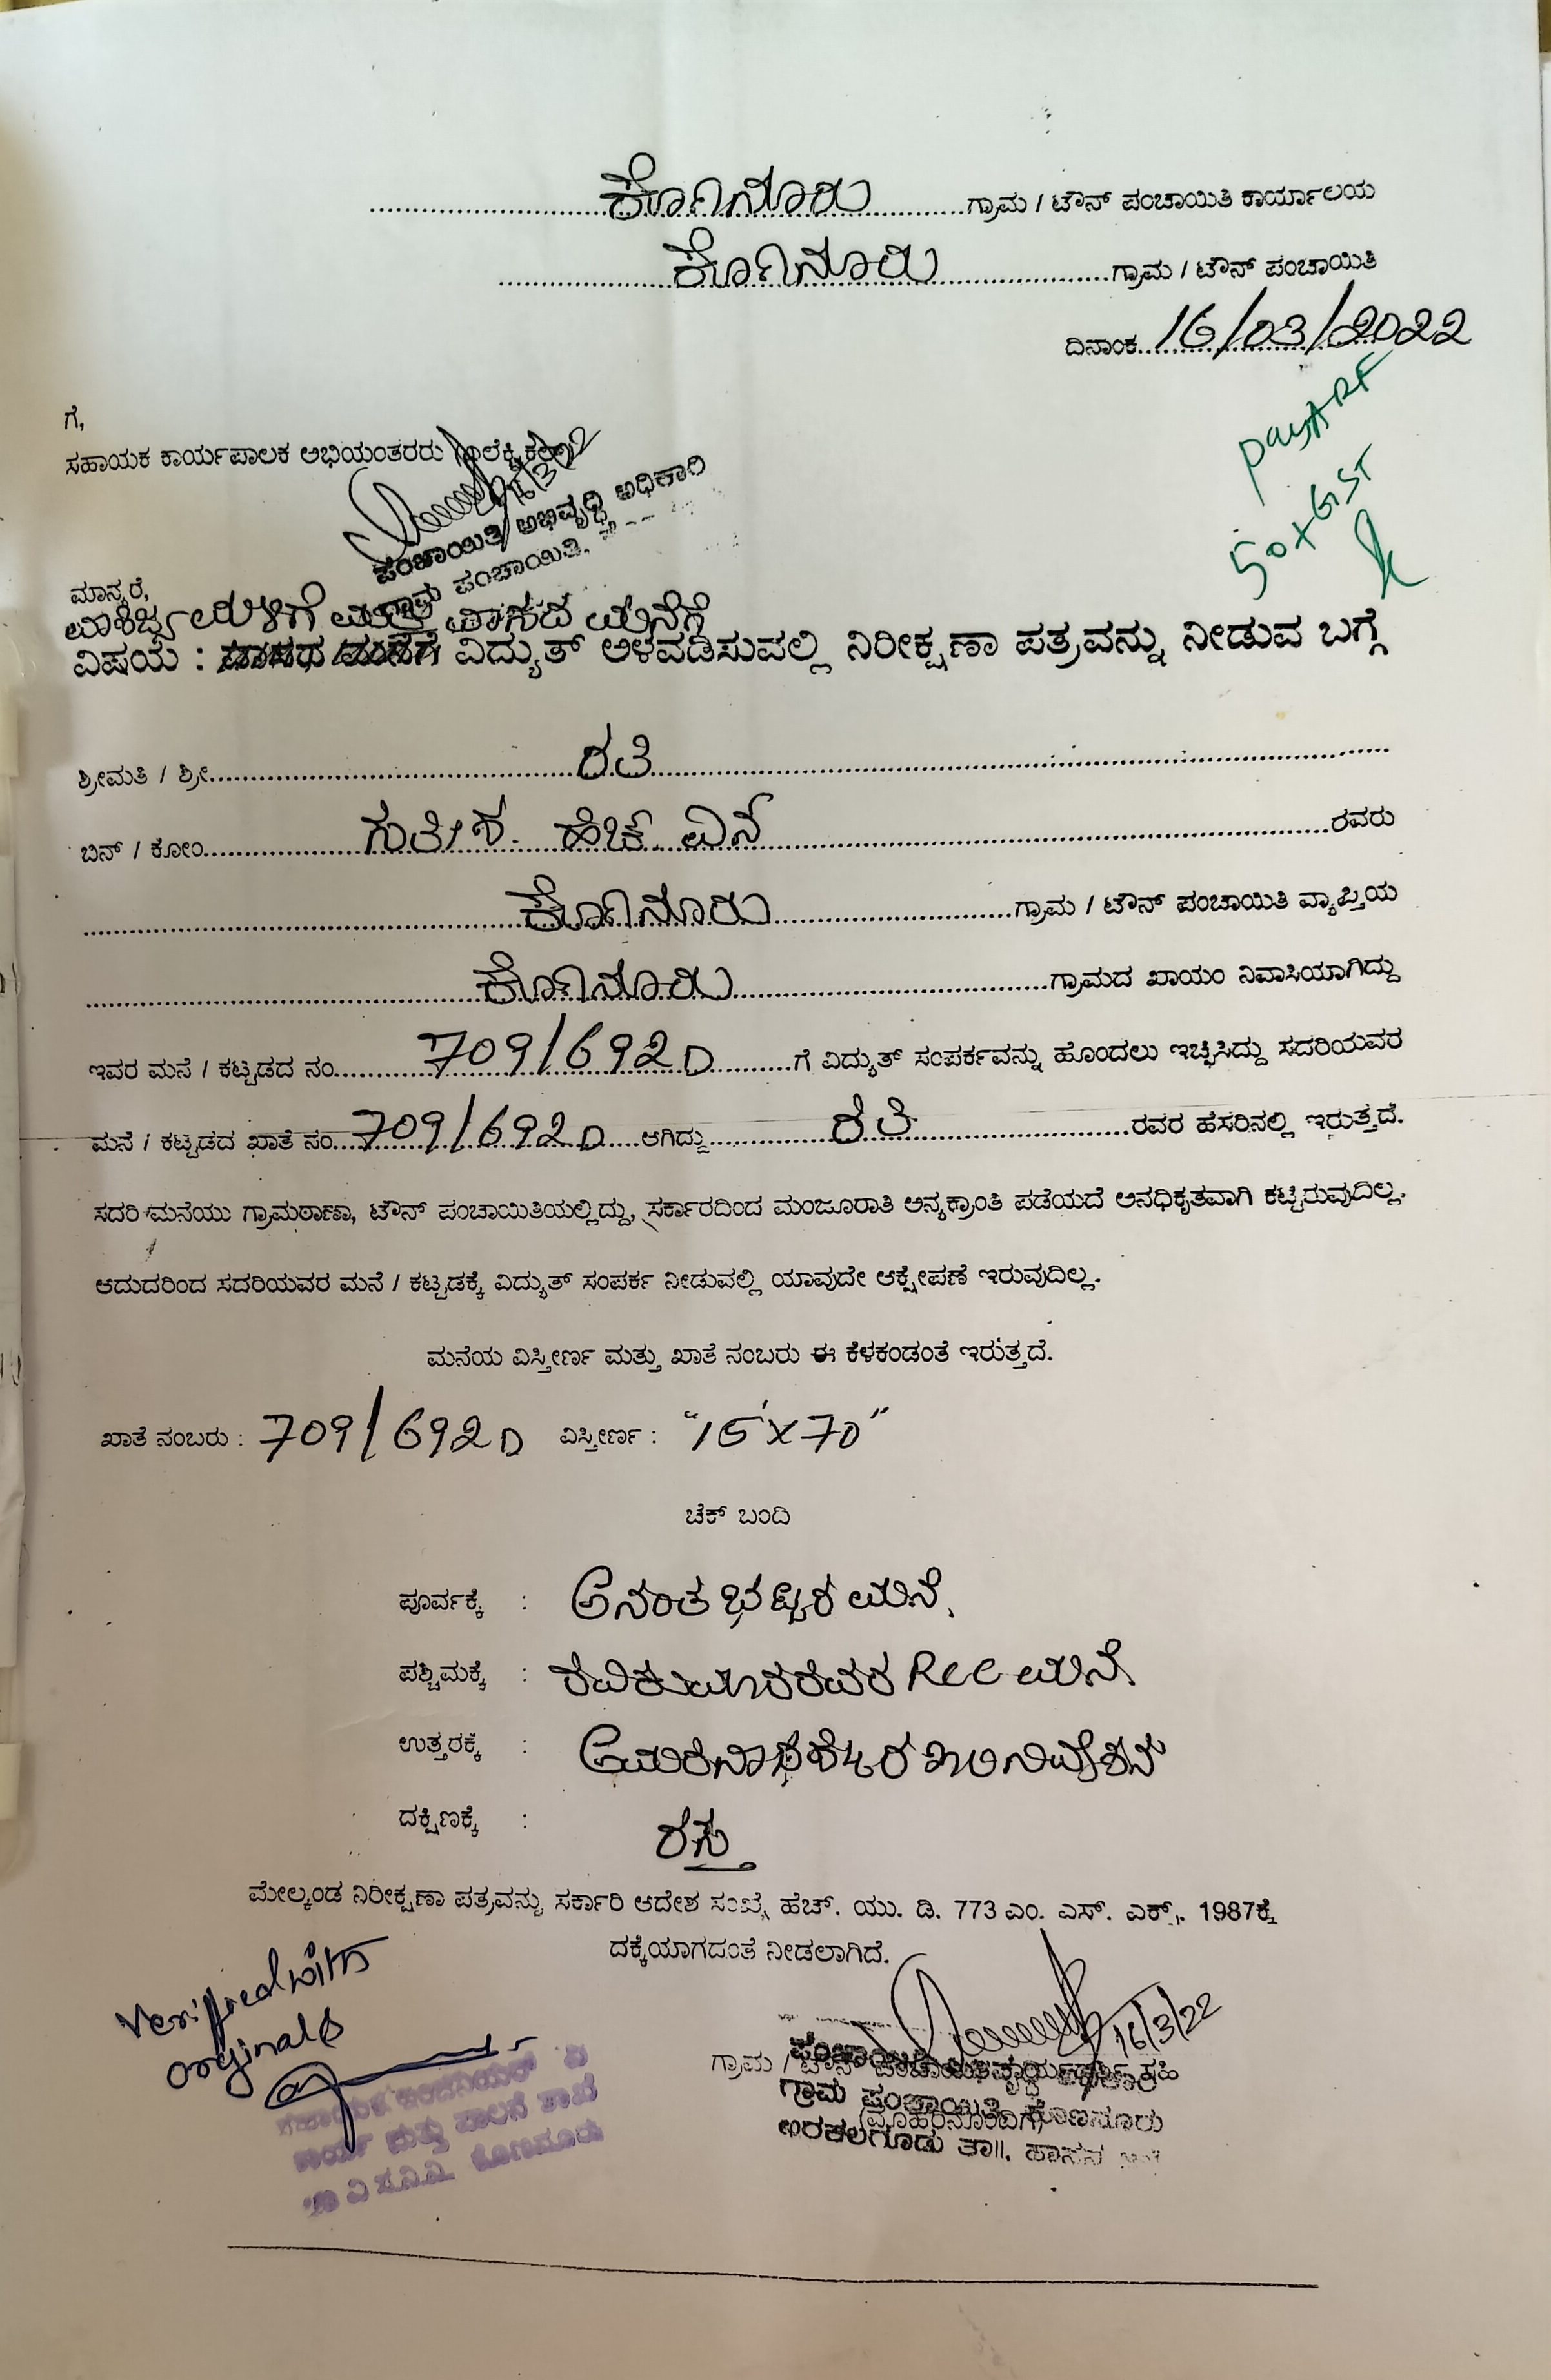 ಕೊಣನೂರು ಗ್ರಾಮ / ಟೌನ್ ಪಂಚಾಯಿತಿ ಕಾರ್ಯಾಲಯ
ಕೊಣನೂರು ಗ್ರಾಮ / ಟೌನ್ ಪಂಚಾಯಿತಿ
ದಿನಾಂಕ 16/03/2022
Pay ARF
50+GST
ಗೆ,
ಸಹಾಯಕ ಕಾರ್ಯಪಾಲಕ ಅಭಿಯಂತರರು
ಪಂಚಾಯಿತಿ ಅಭಿವೃದ್ಧಿ ಅಧಿಕಾರಿ
ಗ್ರಾಮ ಪಂಚಾಯಿತಿ.
ಮಾನ್ಯರೆ,
ಮತ್ತು ವಾಸದ ಮನೆಗೆ
ವಿಷಯ : ವಿದ್ಯುತ್ ಅಳವಡಿಸುವಲ್ಲಿ ನಿರೀಕ್ಷಣಾ ಪತ್ರವನ್ನು ನೀಡುವ ಬಗ್ಗೆ
ಶ್ರೀಮತಿ / ಶ್ರೀ ರತಿ
ಬಿನ್ / ಕೋಂ ಹೆಚ್ ಎನ್ ರವರು
ಕೊಣನೂರು ಗ್ರಾಮ / ಟೌನ್ ಪಂಚಾಯಿತಿ ವ್ಯಾಪ್ತಿಯ
ಕೊಣನೂರು ಗ್ರಾಮದ ಖಾಯಂ ನಿವಾಸಿಯಾಗಿದ್ದು
ಇವರ ಮನೆ / ಕಟ್ಟಡದ ನಂ 709/692D ಗೆ ವಿದ್ಯುತ್ ಸಂಪರ್ಕವನ್ನು ಹೊಂದಲು ಇಚ್ಛಿಸಿದ್ದು ಸದರಿಯವರ
ಮನೆ / ಕಟ್ಟಡದ ಖಾತೆ ನಂ 709/692D ಆಗಿದ್ದು ರತಿ ರವರ ಹೆಸರಿನಲ್ಲಿ ಇರುತ್ತದೆ.
ಸದರಿ ಮನೆಯು ಗ್ರಾಮಠಾಣಾ, ಟೌನ್ ಪಂಚಾಯಿತಿಯಲ್ಲಿದ್ದು, ಸರ್ಕಾರದಿಂದ ಮಂಜೂರಾತಿ ಅನ್ಯಕ್ರಾಂತಿ ಪಡೆಯದೆ ಅನಧಿಕೃತವಾಗಿ ಕಟ್ಟಿರುವುದಿಲ್ಲ.
ಆದುದರಿಂದ ಸದರಿಯವರ ಮನೆ / ಕಟ್ಟಡಕ್ಕೆ ವಿದ್ಯುತ್ ಸಂಪರ್ಕ ನೀಡುವಲ್ಲಿ ಯಾವುದೇ ಆಕ್ಷೇಪಣೆ ಇರುವುದಿಲ್ಲ.
ಮನೆಯ ವಿಸ್ತೀರ್ಣ ಮತ್ತು ಖಾತೆ ನಂಬರು ಈ ಕೆಳಕಂಡಂತೆ ಇರುತ್ತದೆ.
ಖಾತೆ ನಂಬರು : 709/692D ವಿಸ್ತೀರ್ಣ : "15'x70"
ಚೆಕ್ ಬಂದಿ
ಪೂರ್ವಕ್ಕೆ : ಅನಂತ ಭಟ್ಟರ ಮನೆ.
ಪಶ್ಚಿಮಕ್ಕೆ : ರವಿಕುಮಾರರವರ RCC ಮನೆ.
ಉತ್ತರಕ್ಕೆ : ಖಾಲಿ ನಿವೇಶನ
ದಕ್ಷಿಣಕ್ಕೆ : ರಸ್ತೆ
ಮೇಲ್ಕಂಡ ನಿರೀಕ್ಷಣಾ ಪತ್ರವನ್ನು ಸರ್ಕಾರಿ ಆದೇಶ ಸಂಖ್ಯೆ ಹೆಚ್. ಯು. ಡಿ. 773 ಎಂ. ಎಸ್. ಎಕ್ಸ್. 1987ಕ್ಕೆ
ದಕ್ಕೆಯಾಗದಂತೆ ನೀಡಲಾಗಿದೆ.
Verified with
orginals
16/3/22
ಗ್ರಾಮ ಪಂಚಾಯಿತಿ ಕೊಣನೂರು
ಅರಕಲಗೂಡು ತಾ||. ಹಾಸನ
ಕಾರ್ಯ ಮತ್ತು ಪಾಲನೆ ಶಾಖೆ
ಕೊಣನೂರು